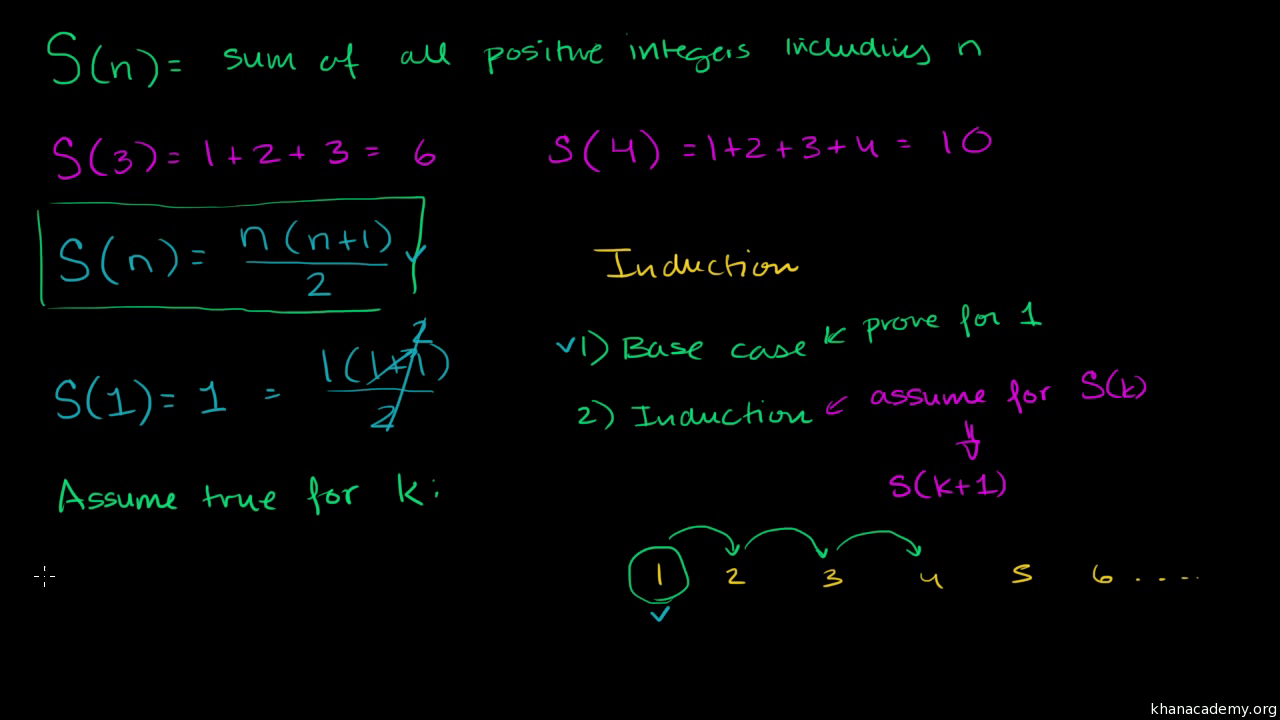 S(n) = sum of all positive integers including n
S(3) = 1 + 2 + 3 = 6
S(4) = 1+2+3+4 = 10
S(n) = n(n+1)/2
S(1) = 1 = 1(1+1)/2
2
Assume true for k:
Induction
1) Base case prove for 1
2) Induction assume for S(k)
S(k+1)
1 2 3 4 5 6 ....
khanacademy.org